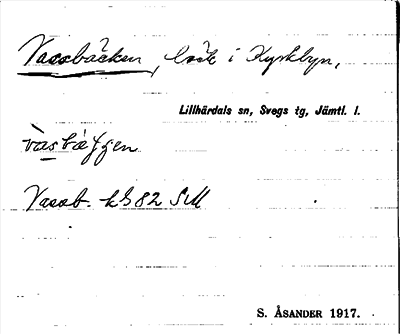 Vassbäcken, bäck i Kyrkbyn,
Lillhärdals sn, Svegs tg, Jämtl. l.
Vassb. k 582 SM
S. ÅSANDER 1917.